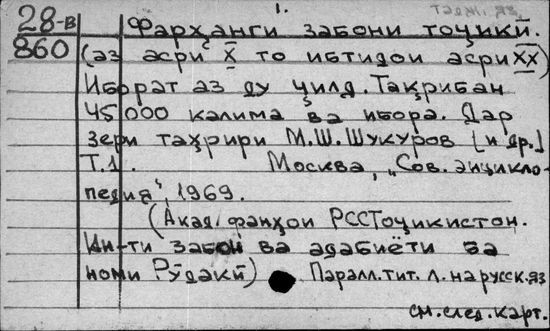 1.
28-в Фарҳанги забони тоҷикӣ.
860 (аз асри X то ибтидои асри XX)
Иборат аз ду ҷилд. Тақрибан
45000 калима ва ибора. Дар
зери таҳрири М.Ш.Шукуров [и др.]
Т.1. Москва, „Сов. энцикло-
педия", 1969.
(Акад. фанҳои РССТоҷикистон.
Ин-ти забон ва адабиёти ба
номи Рӯдакӣ) Паралл. тит. л. на русск. яз
см. след. карт.